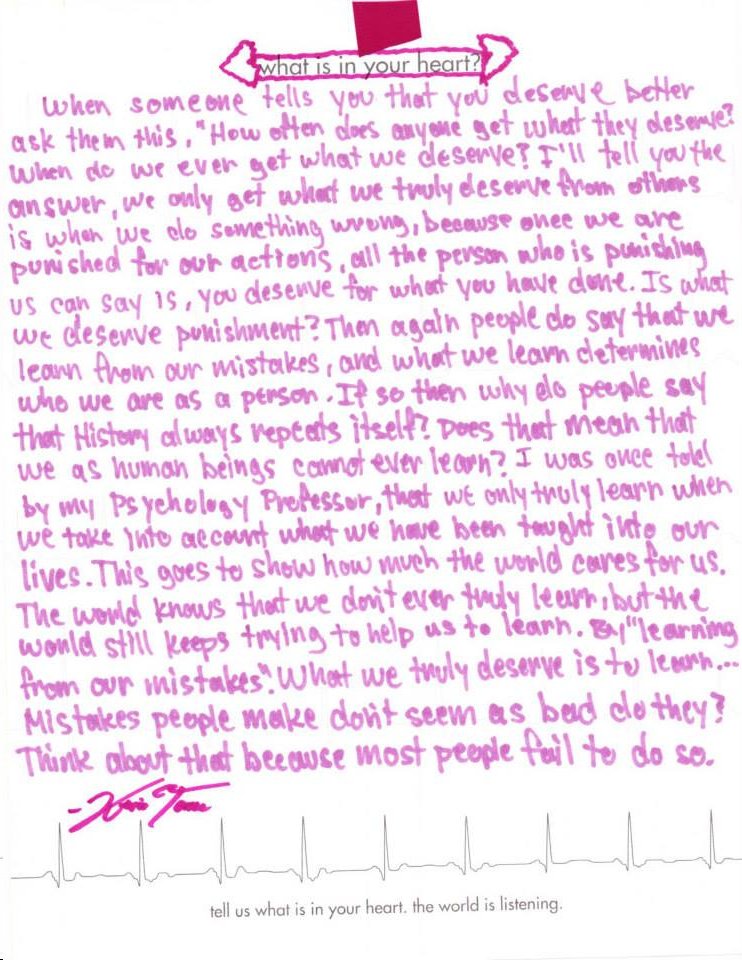 what is in your heart?
When someone tells you that you deserve better
ask them this, "How often does anyone get what they deserve?
When do we ever get what we deserve? I'll tell you the
answer, we only get what we truly deserve from others
is when we do something wrong, because once we are
punished for our actions, all the person who is punishing
us can say is, you deserve for what you have done. Is what
we deserve punishment? Then again people do say that we
learn from our mistakes, and what we learn determines
who we are as a person. If so then why do people say
that History always repeats itself? Does that mean that
we as human beings cannot ever learn? I was once told
by my Psychology Professor, that we only truly learn when
we take into account what we have been taught into our
lives. This goes to show how much the world cares for us.
The world knows that we don't ever truly learn, but the
world still keeps trying to help us to learn. By "learning
from our mistakes". What we truly deserve is to learn...
Mistakes people make don't seem as bad do they?
Think about that because most people fail to do so.
tell us what is in your heart. the world is listening.